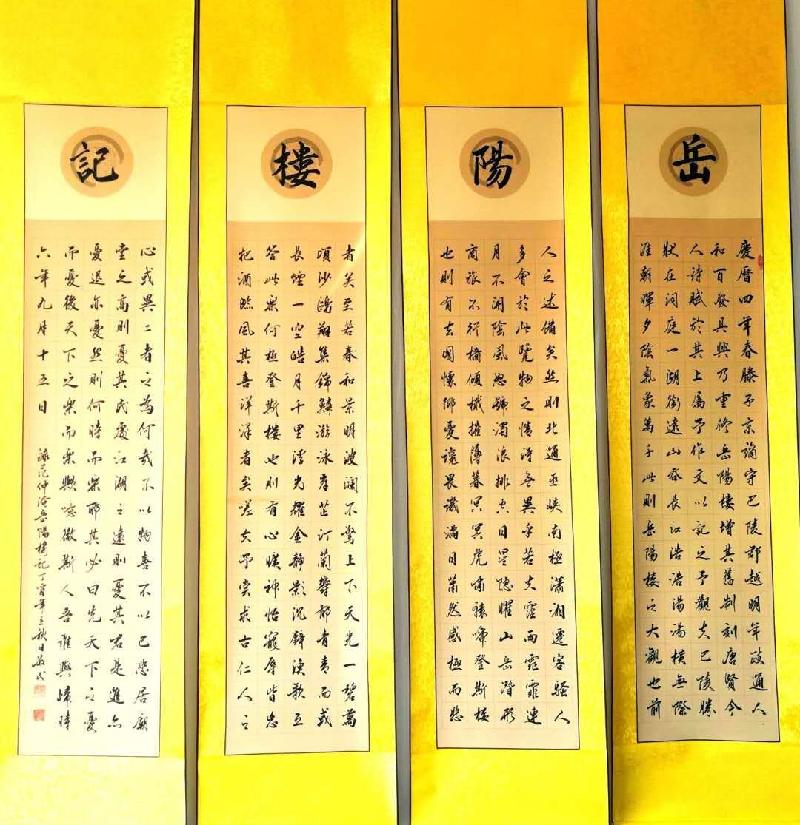 岳
慶曆四年春滕子京謫守巴陵郡越明年政通人
和百廢具興乃重修岳陽樓增其舊制刻唐賢今
人詩賦於其上屬予作文以記之予觀夫巴陵勝
狀在洞庭一湖銜遠山吞長江浩浩湯湯橫無際
涯朝暉夕陰氣象萬千此則岳陽樓之大觀也前
陽
人之述備矣然則北通巫峽南極瀟湘遷客騷人
多會於此覽物之情得無異乎若夫霪雨霏霏連
月不開陰風怒號濁浪排空日星隱曜山岳潛形
商旅不行檣傾楫摧薄暮冥冥虎嘯猿啼登斯樓
也則有去國懷鄉憂讒畏譏滿目蕭然感極而悲
樓
者矣至若春和景明波瀾不驚上下天光一碧萬
頃沙鷗翔集錦鱗游泳岸芷汀蘭鬱鬱青青而或
長煙一空皓月千里浮光耀金靜影沉璧漁歌互
答此樂何極登斯樓也則有心曠神怡寵辱皆忘
把酒臨風其喜洋洋者矣嗟夫予嘗求古仁人之
記
心或異二者之為何哉不以物喜不以己悲居廟
堂之高則憂其民處江湖之遠則憂其君是進亦
憂退亦憂然則何時而樂耶其必曰先天下之憂
而憂後天下之樂而樂歟噫微斯人吾誰與歸時
六年九月十五日
錄范仲淹岳陽樓記丁酉年之秋日